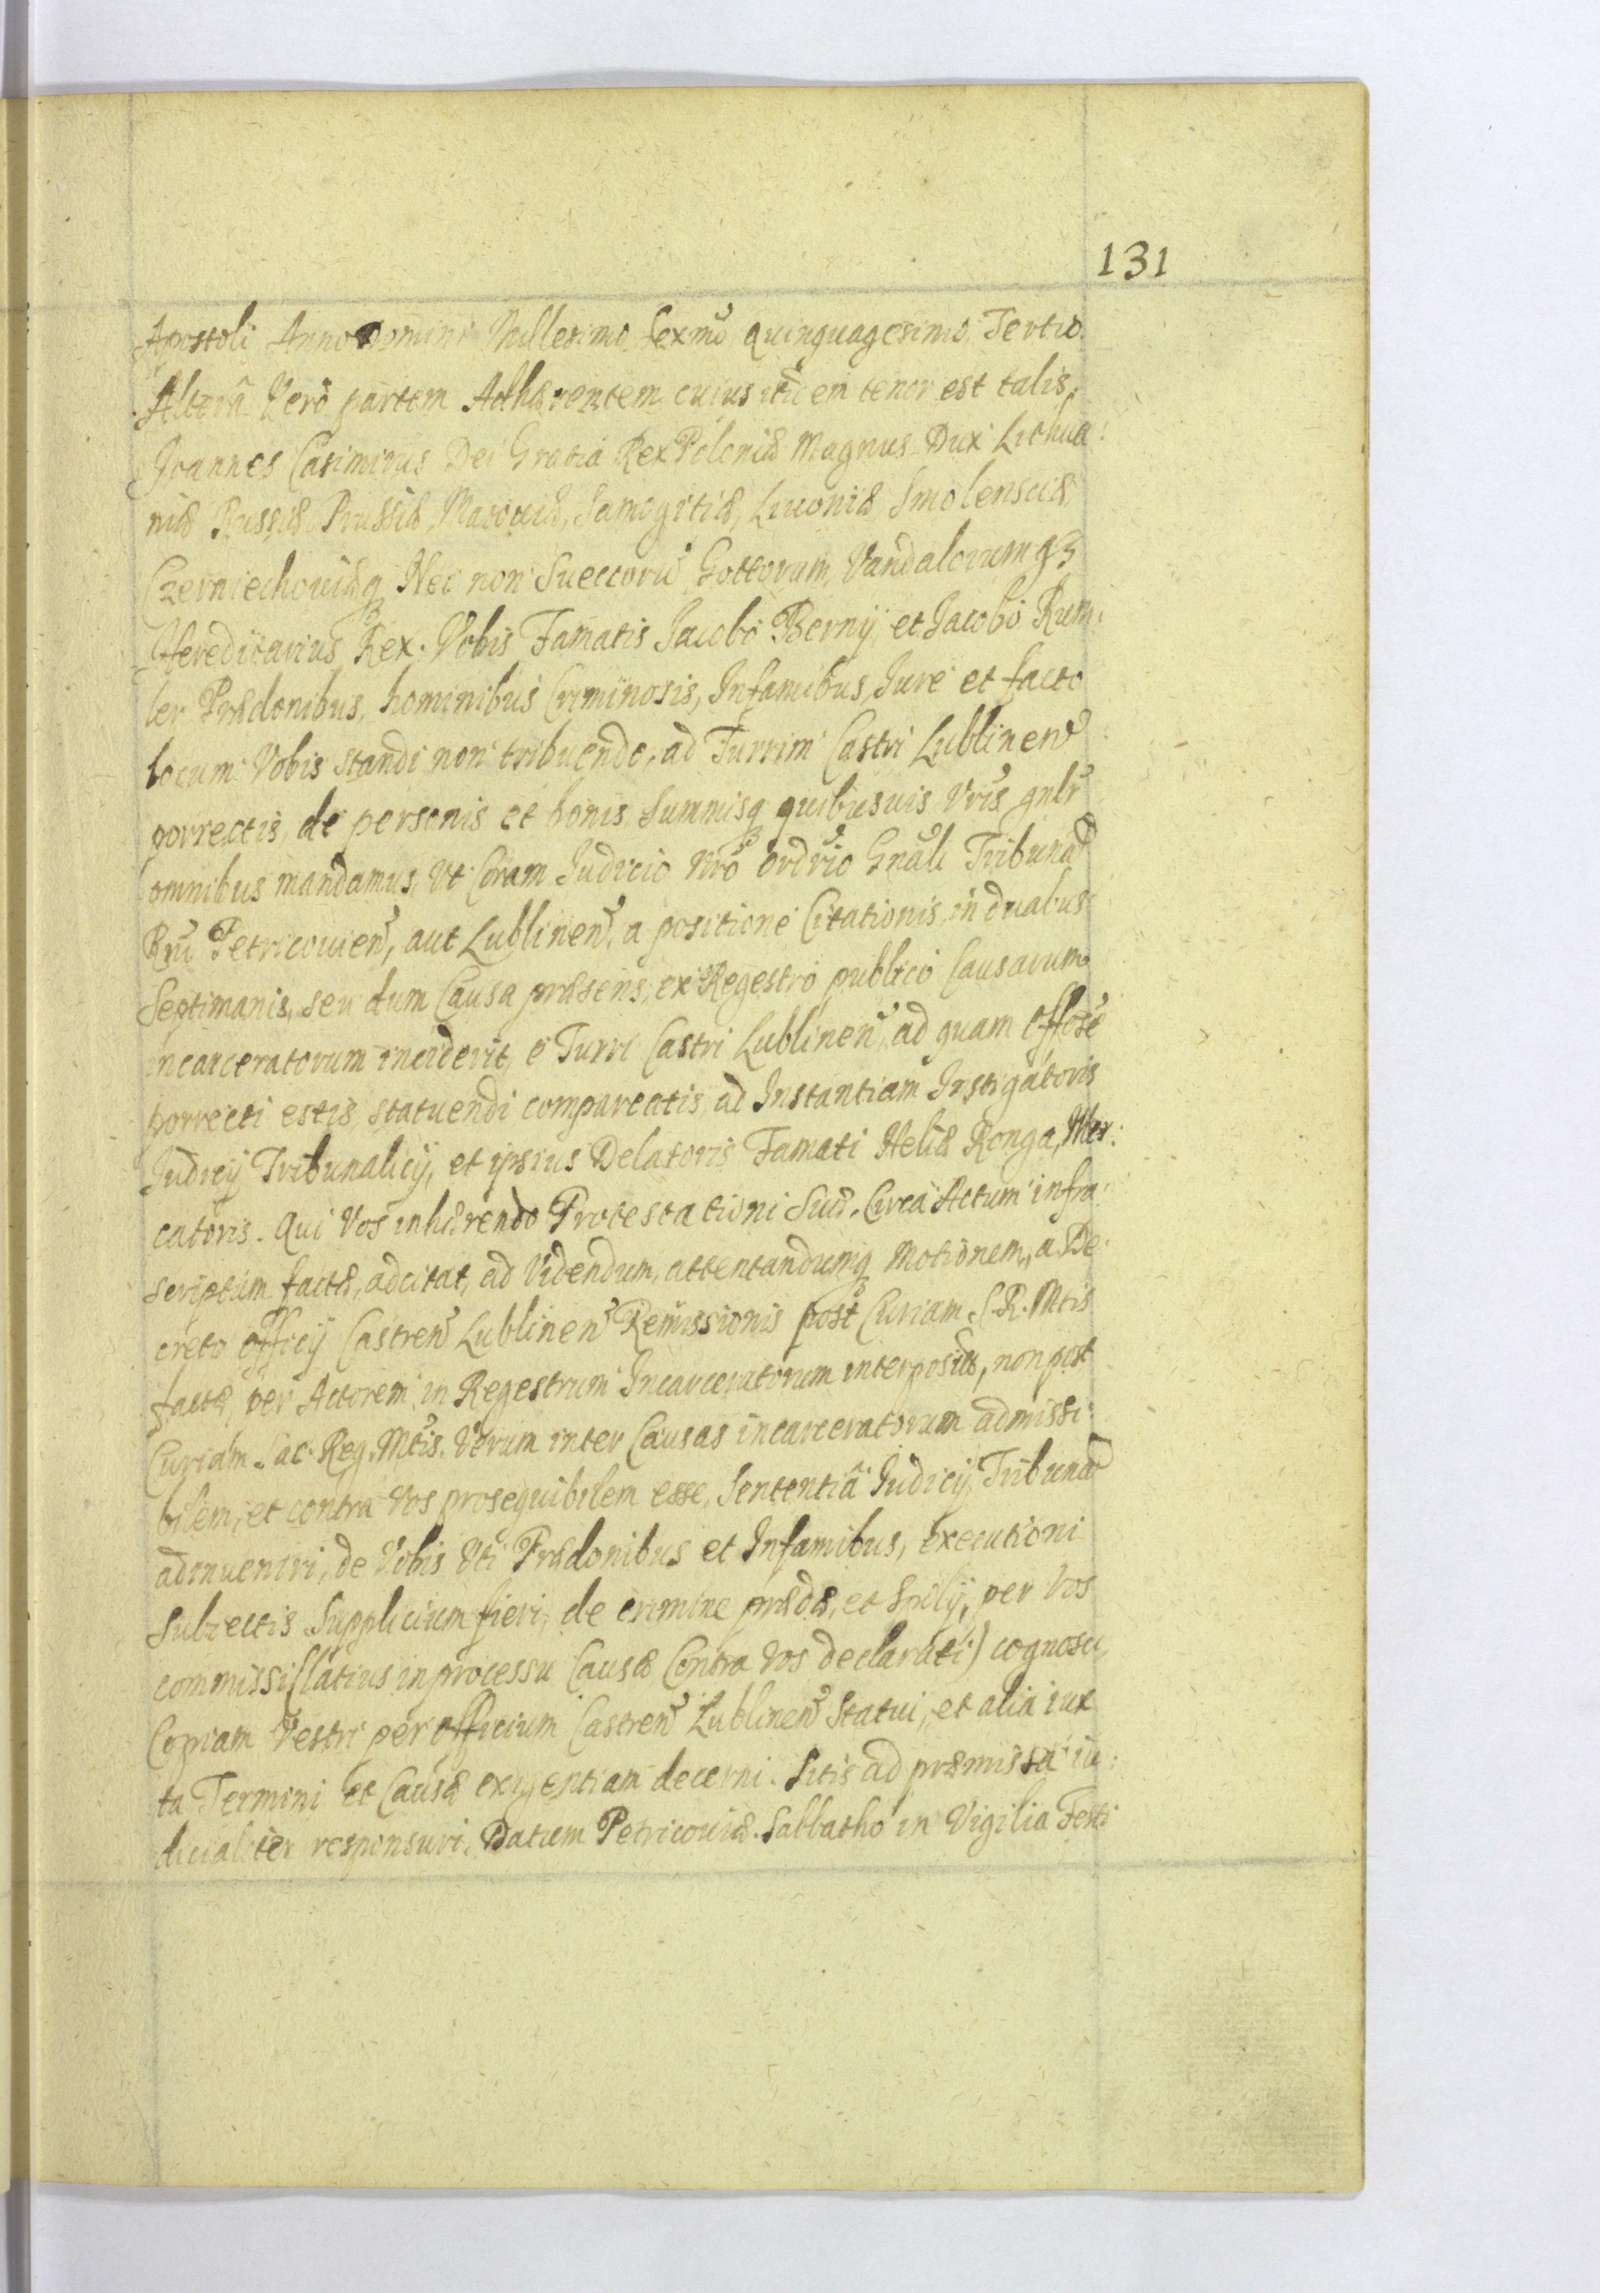 131
Apostoli Anno Domini Millesimo Sexmo quinquagesimo Tertio.
Alterâ Verò partem Adhærentem cuius itidem tenor est talis,
Joannes Casimirus Dei Gratiâ Rex Poloniæ Magnus Dux Lithua:
niæ Russiæ Prussiæ Masouiæ, Samogitiæ, Liuoniæ Smolensciæ
Czerniechouiæq3 Nec non Sueccorū Gottorum, Vandalorumq3
Hereditarius Rex. Vobis Famatis Jacobo Berny, et Jacobo Rum:
ler Prædonibus, hominibus Criminosis, Infamibus, Jure et facto
locum Vobis standi non tribuendo, ad Turrim Castri Lublinen
porrectis, de personis et bonis Summisq3 quibusuis Vris gnlr
omnibus mandamus, Vt Coram Judicio Nro ordrio Gnali Tribunal
Rni Petricouien, aut Lublinen, a positione Citationis, in duabus
Septimanis, seu dum Causa præsens, ex Regestro publico Causarum
incarceratorum inciderit, è Turri Castri Lublinen, ad quam Offose
porrecti estis, statuendi compareatis, ad Instantiam Instigatoris
Judicij Tribunalicij, et ipsius Delatoris Famati Heliæ Ronga, Mer:
catoris. Qui Vos inhærendo Protestationi Suæ, Circa Actum infra:
scriptum factæ, adcitat, ad Videndum, attentandumq3 Motionem, a De:
creto Officij Castren Lublinen Remissionis post Curiam S. R. Mtis
factæ, per Actorem, in Regestrum Incarceratorum interpositæ, non post
Curiam Sac. Reg. Mtis. Verum inter Causas incarceratorum admissi:
bilem, et contra Vos prosequibilem esse, Sententiâ Judicij Tribunal
adinueniri, de Vobis Vti Prædonibus et Infamibus, executioni
Subiectis Supplicium fieri, de crimine prædæ, et Spolij, per Vos
commissi (latius in processu Causæ Contra Vos declarati) cognosci,
Copiam Vestri per officium Castren Lublinen Statui, et alia iux
ta Termini et Causæ exigentiam decerni. Sitis ad præmissa iu:
dicialiter responsuri. Datum Petricouiæ. Sabbatho in Vigilia Festi